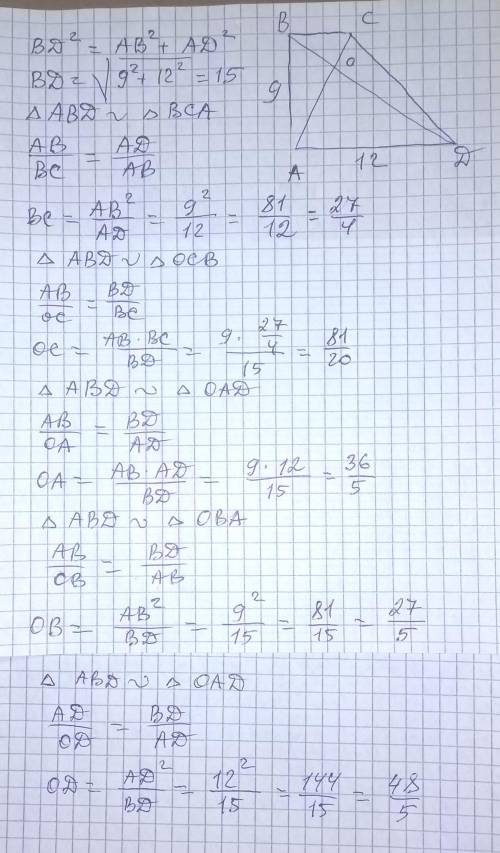 BD² = AB² + AD²
BD = √9² + 12² = 15
△ ABD ~ △ BCA
AB/BC = AD/AB
BC = AB²/AD = 9²/12 = 81/12 = 27/4
△ ABD ~ △ OCB
AB/OC = BD/BC
OC = AB · BC/BD = 9 · 27/4/15 = 81/20
△ ABD ~ △ OAD
AB/OA = BD/AD
OA = AB · AD/BD = 9 · 12/15 = 36/5
△ ABD ~ △ OBA
AB/OB = BD/AB
OB = AB²/BD = 9²/15 = 81/15 = 27/5
△ ABD ~ △ OAD
AD/OD = BD/AD
OD = AD²/BD = 12²/15 = 144/15 = 48/5
B
C
O
9
A
12
D